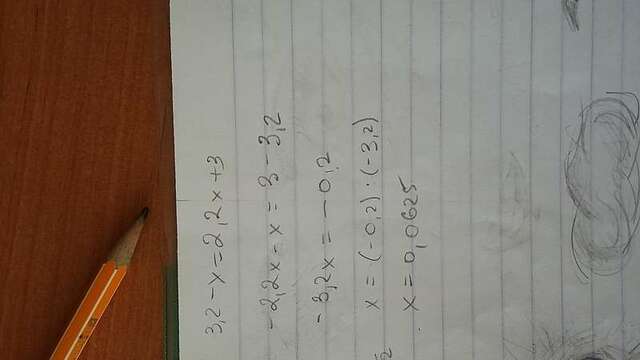 3,2-x=2,2x+3
-2,2x-x=3-3,2
-3,2x=-0,2
x=(-0,2)·(-3,2)
x=0,0625